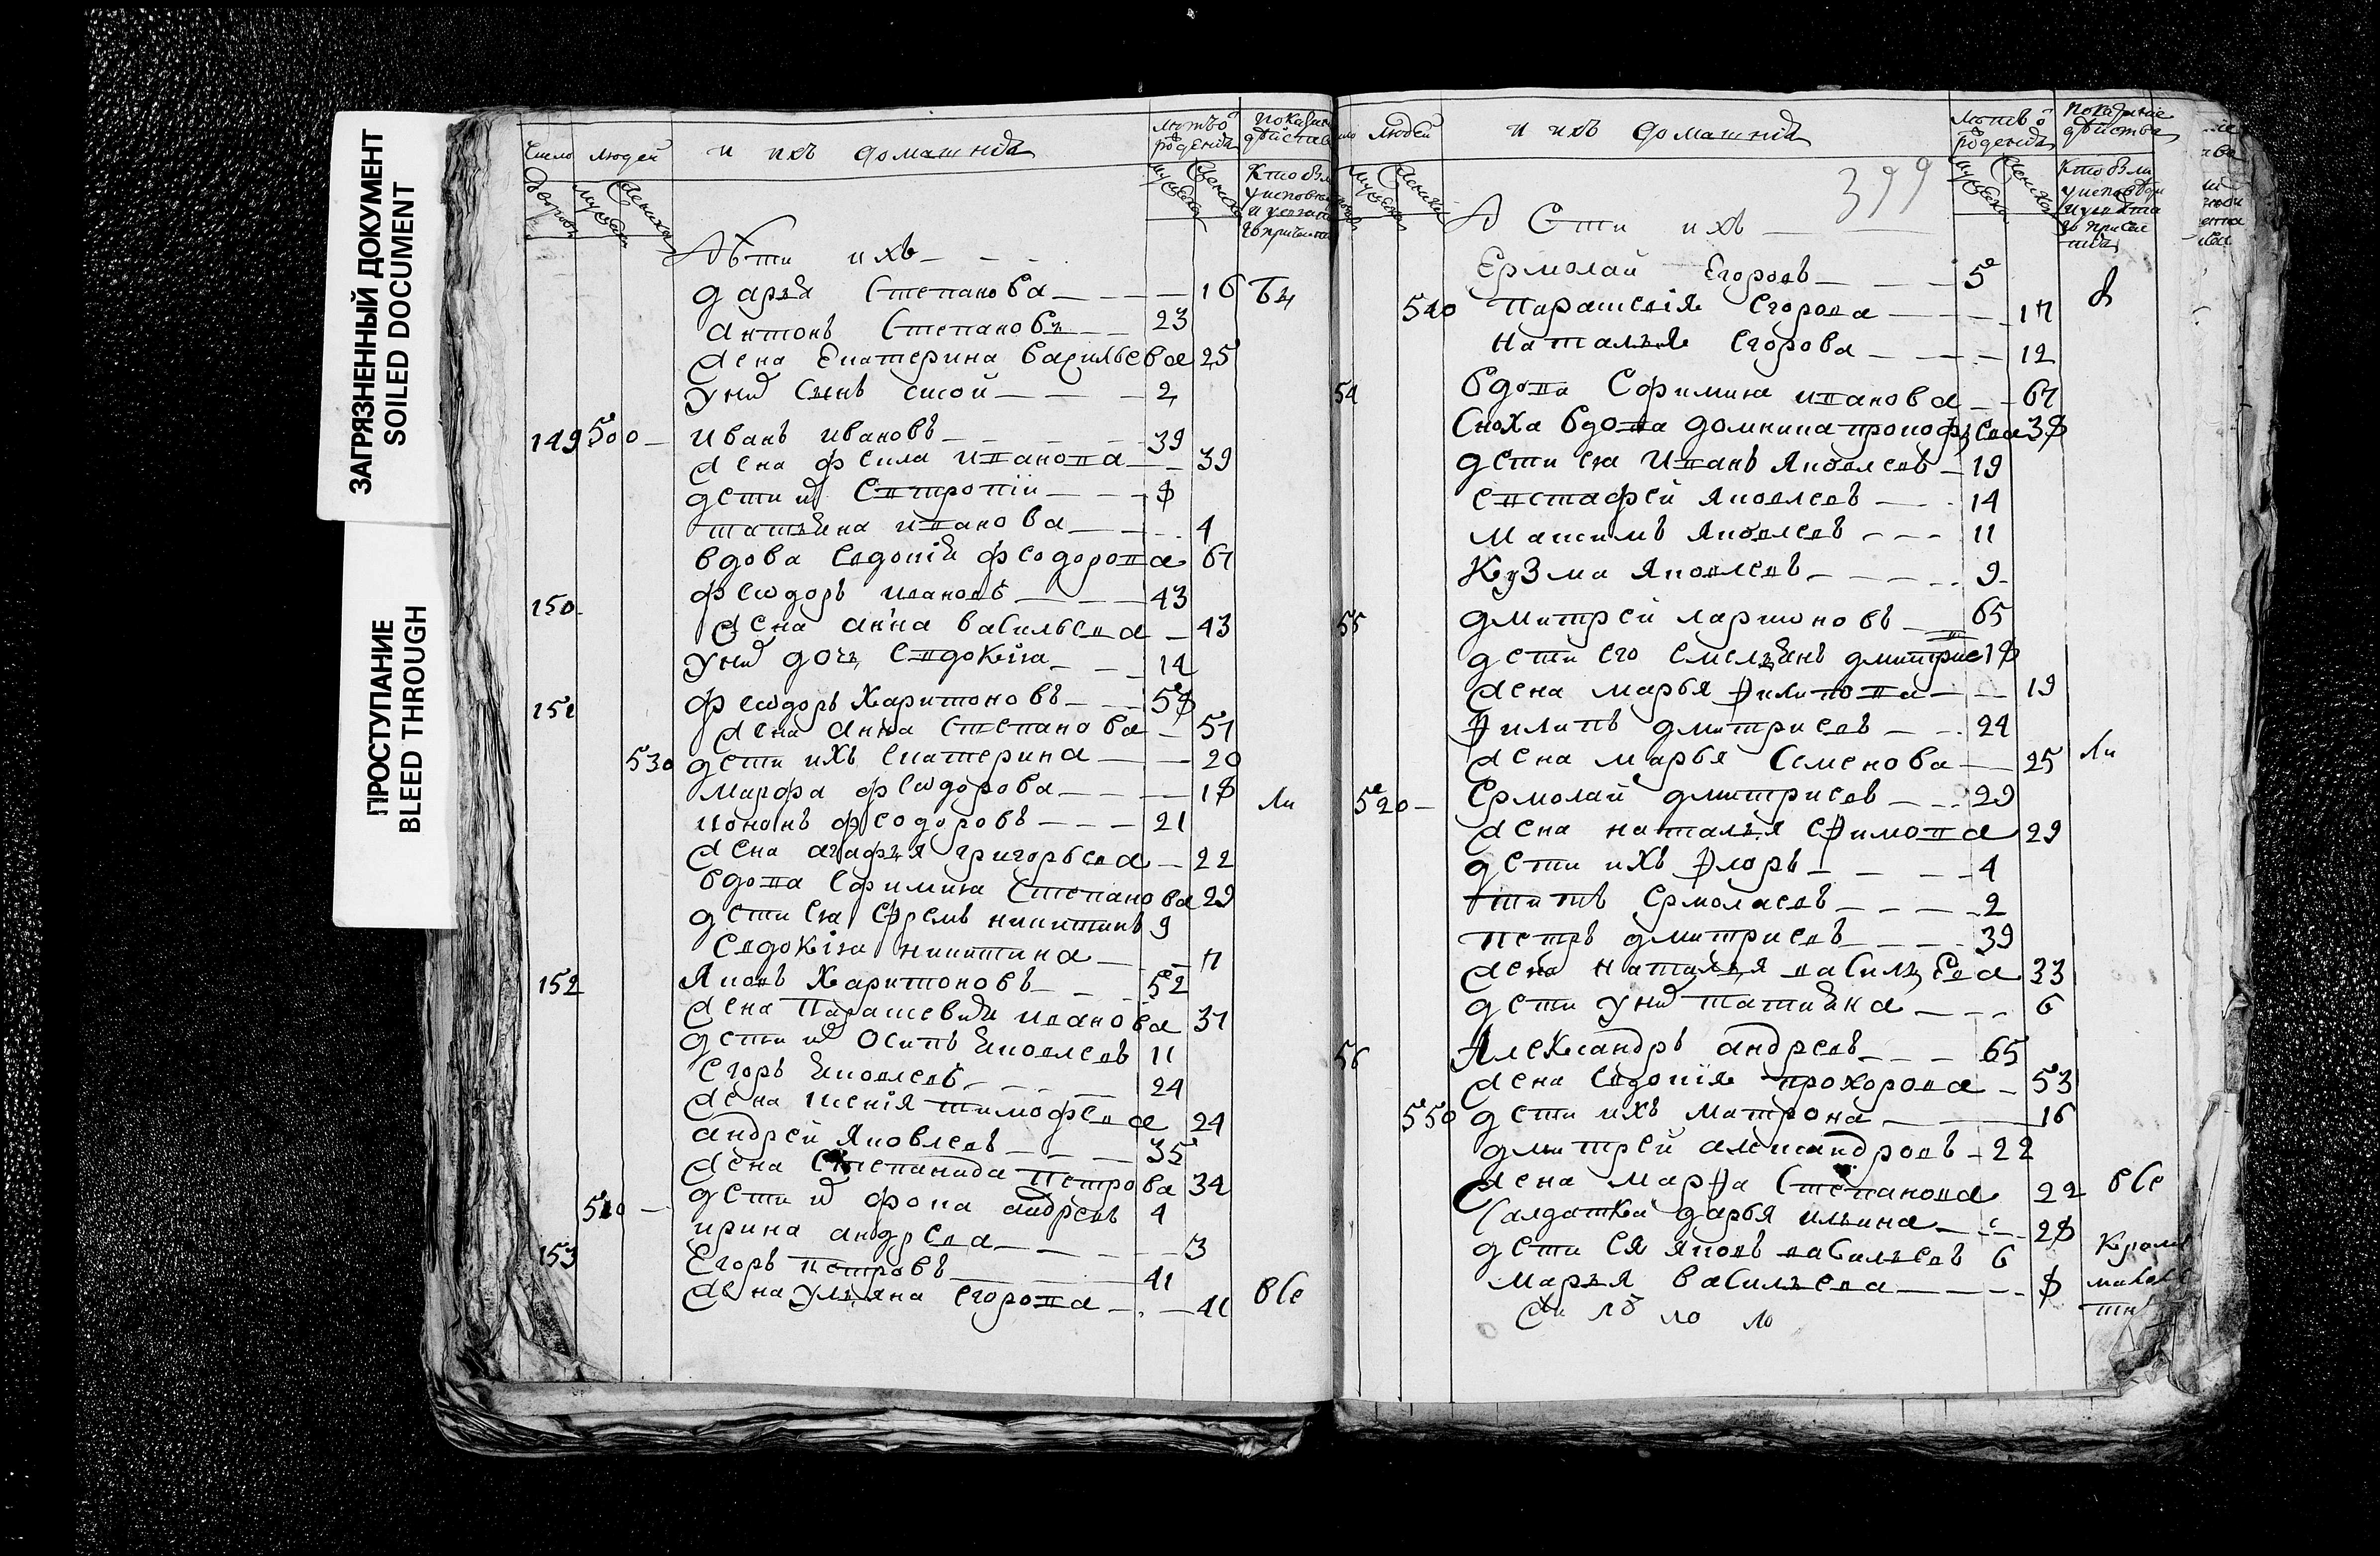 ЗАГРЯЗНЕННЫЙ ДОКУМЕНТ
SOILED DOCUMENT
ПРОСТУПАНИЕ
BLEED THROUGH
Число людей и ихъ домашнїя
Дѣти ихъ
дарья Степанова 16
антонъ Степановъ 23
жена Екатерина Васильева 25
у них сынъ сысой 2
149 500 иванъ ивановъ 39
жена фекла иванова 39
дети их Евтропїи 8
татьяна иванова 4
вдова Евдокїя феодорова 67
150 феодоръ ивановъ 43
жена анна васильева 43
у них дочь Евдокїя 14
151 феодоръ Харитоновъ 58
жена анна Степанова 57
530 дети ихъ Екатерина 20
марфа феодорова 18
кононъ феодоровъ 21
жена агафья григорьева 22
вдова Ефимия Степанова 29
дети ея Ефремъ никитинъ 9
Евдокїя никитина 7
152 Яковъ Харитоновъ 52
жена Парасковья иванова 37
дети их Осипъ яковлевъ 11
Егоръ яковлевъ 24
жена ксенїя тимофеева 24
андрей Яковлевъ 35
жена Степанида петрова 34
510 дети их фока андреевъ 4
ирина андреева 3
153 Егоръ петровъ 41
жена ульяна Егорова 41 все
людей и ихъ домашнїя
399
Дети ихъ
Ермолай Егоровъ 5
540 Парасковїя Егорова 17
наталья Егорова 12
54 вдова Ефимия иванова 67
Сноха вдова домникия прокофьева 38
дети ея Иванъ Яковлевъ 19
Евстафей Яковлевъ 14
Максимъ Яковлевъ 11
Кузма Яковлевъ 9
55 дмитрей ларионовъ 65
дети его Емельянъ дмитрие 18
жена марья филипова 19
филипъ дмитриевъ 24
жена марья Семенова 25
520 Ермолай дмитриевъ 29
жена наталья Ефимова 29
дети ихъ флоръ 4
титъ Ермолаевъ 2
петръ дмитриевъ 39
жена наталья васильева 33
дети у них татьяна 6
56 Александръ андреевъ 65
жена Евдокїя прохорова 53
550 дети ихъ матрона 16
дмитрей александровъ 22
жена марфа Степанова 22 все
Салдатка дарья ильина 28
дети ея яковъ васильевъ 6
марья васильева 8